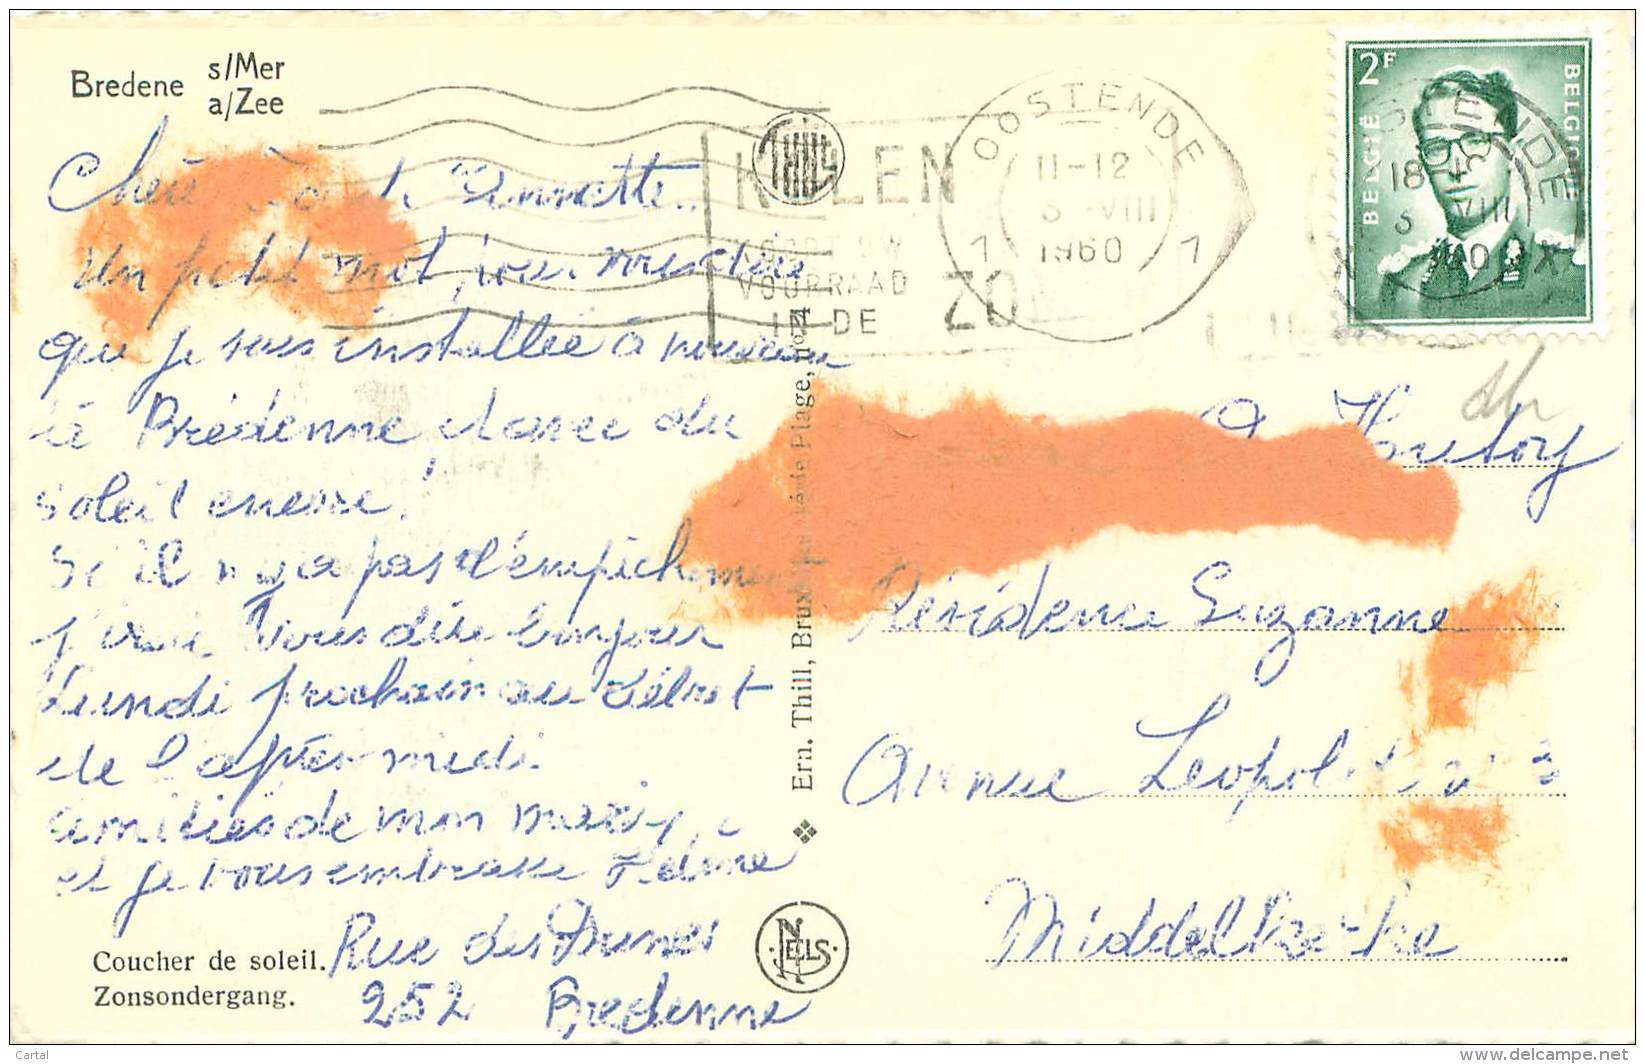 Bredene s/Mer
a/Zee
Chère Annette.
Un petit mot pour vous dire
que je suis installée à nouveau
à Brédenne avec du
soleil encore!
Si il n y a pas d'empêchement
j'irai vous dire bonjour
Lundi prochain au début
de l'après midi.
amitiés de mon mari,
et je vous embrasse
Rue des Dunes
252 Bredenne
Coucher de soleil.
Zonsondergang.
Ern. Thill, Bruxelles Série Plage, No 4
NELS
THILL
KOLEN
VOORRAAD
IN DE ZOMER
OOSTENDE
11-12
VIII
1960
1 1
2F
BELGIË
BELGIQUE
OOSTENDE
18
VIII
X X
Hutoy
Résidence Suzanne
Avenue Leopold
Middelkerke
Cartal
www.delcampe.net